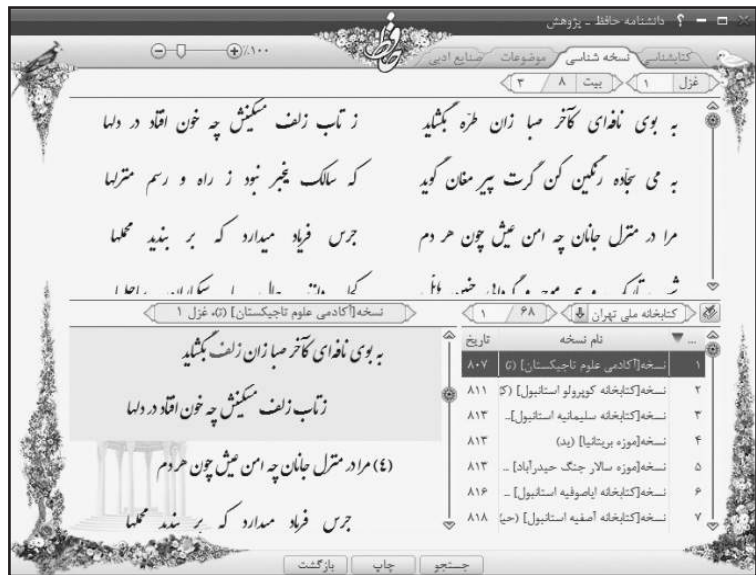 دانشنامه حافظ ـ پژوهش
کتابشناسی نسخه شناسی موضوعات صنایع ادبی
حافظ
٪۱۰۰
غزل ۱ بیت ۸ / ۳
به بوی نافه‌ای کآخر صبا زان طرّه بگشاید ز تاب زلف مشکینش چه خون افتاد در دلها
به می سجّاده رنگین کن گرت پیر مغان گوید که سالک بیخبر نبود ز راه و رسم منزلها
مرا در منزل جانان چه امن عیش چون هر دم جرس فریاد میدارد که بر بندید محملها
کتابخانه ملی تهران ۶۸ / ۱
نسخه[آکادمی علوم تاجیکستان] (تا)، غزل ۱
... نام نسخه تاریخ
۱ نسخه[آکادمی علوم تاجیکستان] (تا) ۸۰۷
۲ نسخه[کتابخانه کوپرولو استانبول] (ک ۸۱۱
۳ نسخه[کتابخانه سلیمانیه استانبول].. ۸۱۳
۴ نسخه[موزه بریتانیا] (ید) ۸۱۳
۵ نسخه[موزه سالار جنگ حیدرآباد] ... ۸۱۳
۶ نسخه[کتابخانه ایاصوفیه استانبول] ... ۸۱۶
۷ نسخه[کتابخانه آصفیه استانبول] (حیا ۸۱۸
به بوی نافه ای کآخر صبا زان زلف بگشاید
ز تاب زلف مشکینش چه خون افتاد در دلها
(٤) مرا در منزل جانان چه امن عیش چون هر دم
جرس فریاد میدارد که بر بندید محملها
جستجو چاپ بازگشت